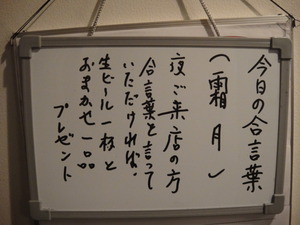 今日の合言葉
(霜月)
夜ご来店の方
合言葉を言って
いただければ、
生ビール一杯と
おまかせ一品
プレゼント